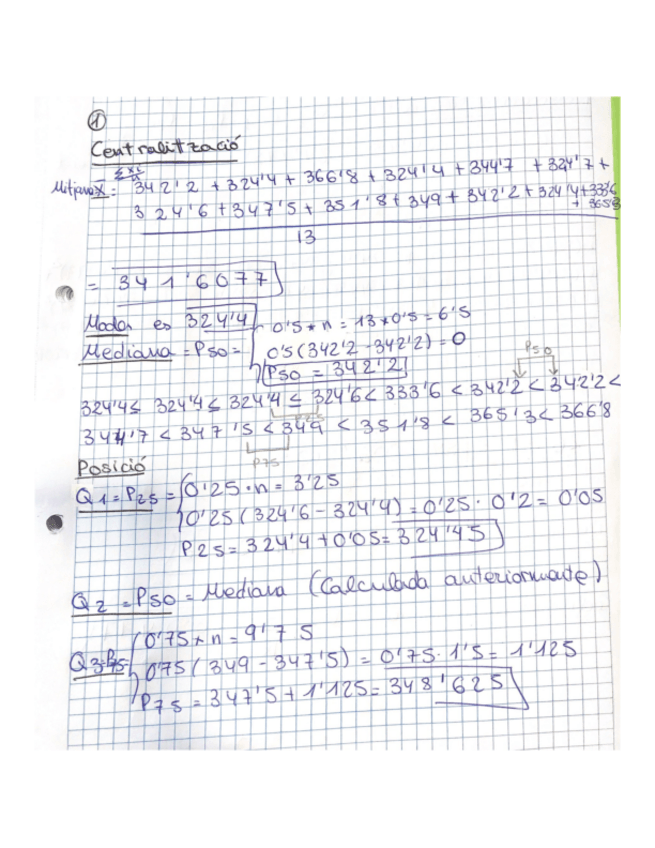 1
Centralització
Σxi
n
Mitjana X̄ = 342'2 + 324'4 + 366'8 + 324'4 + 344'7 + 324'7 +
324'6 + 347'5 + 351'8 + 349 + 342'2 + 324'4 + 333'6
+ 365'3
13
= 341'6077
Moda es 324'4
Mediana = P50 =
0'5 * n = 13 * 0'5 = 6'5
0'5 (342'2 - 342'2) = 0
P50 = 342'2
P50
324'4 ≤ 324'4 ≤ 324'4 ≤ 324'6 < 333'6 < 342'2 < 342'2 <
P25
344'7 < 347'5 < 349 < 351'8 < 365'3 < 366'8
P75
Posició
Q1 = P25 = 0'25 · n = 3'25
0'25 (324'6 - 324'4) = 0'25 · 0'2 = 0'05
P25 = 324'4 + 0'05 = 324'45
Q2 = P50 = Mediana (Calculada anteriormente)
Q3 = P75 = 0'75 * n = 9'75
0'75 (349 - 347'5) = 0'75 · 1'5 = 1'125
P75 = 347'5 + 1'125 = 348'625